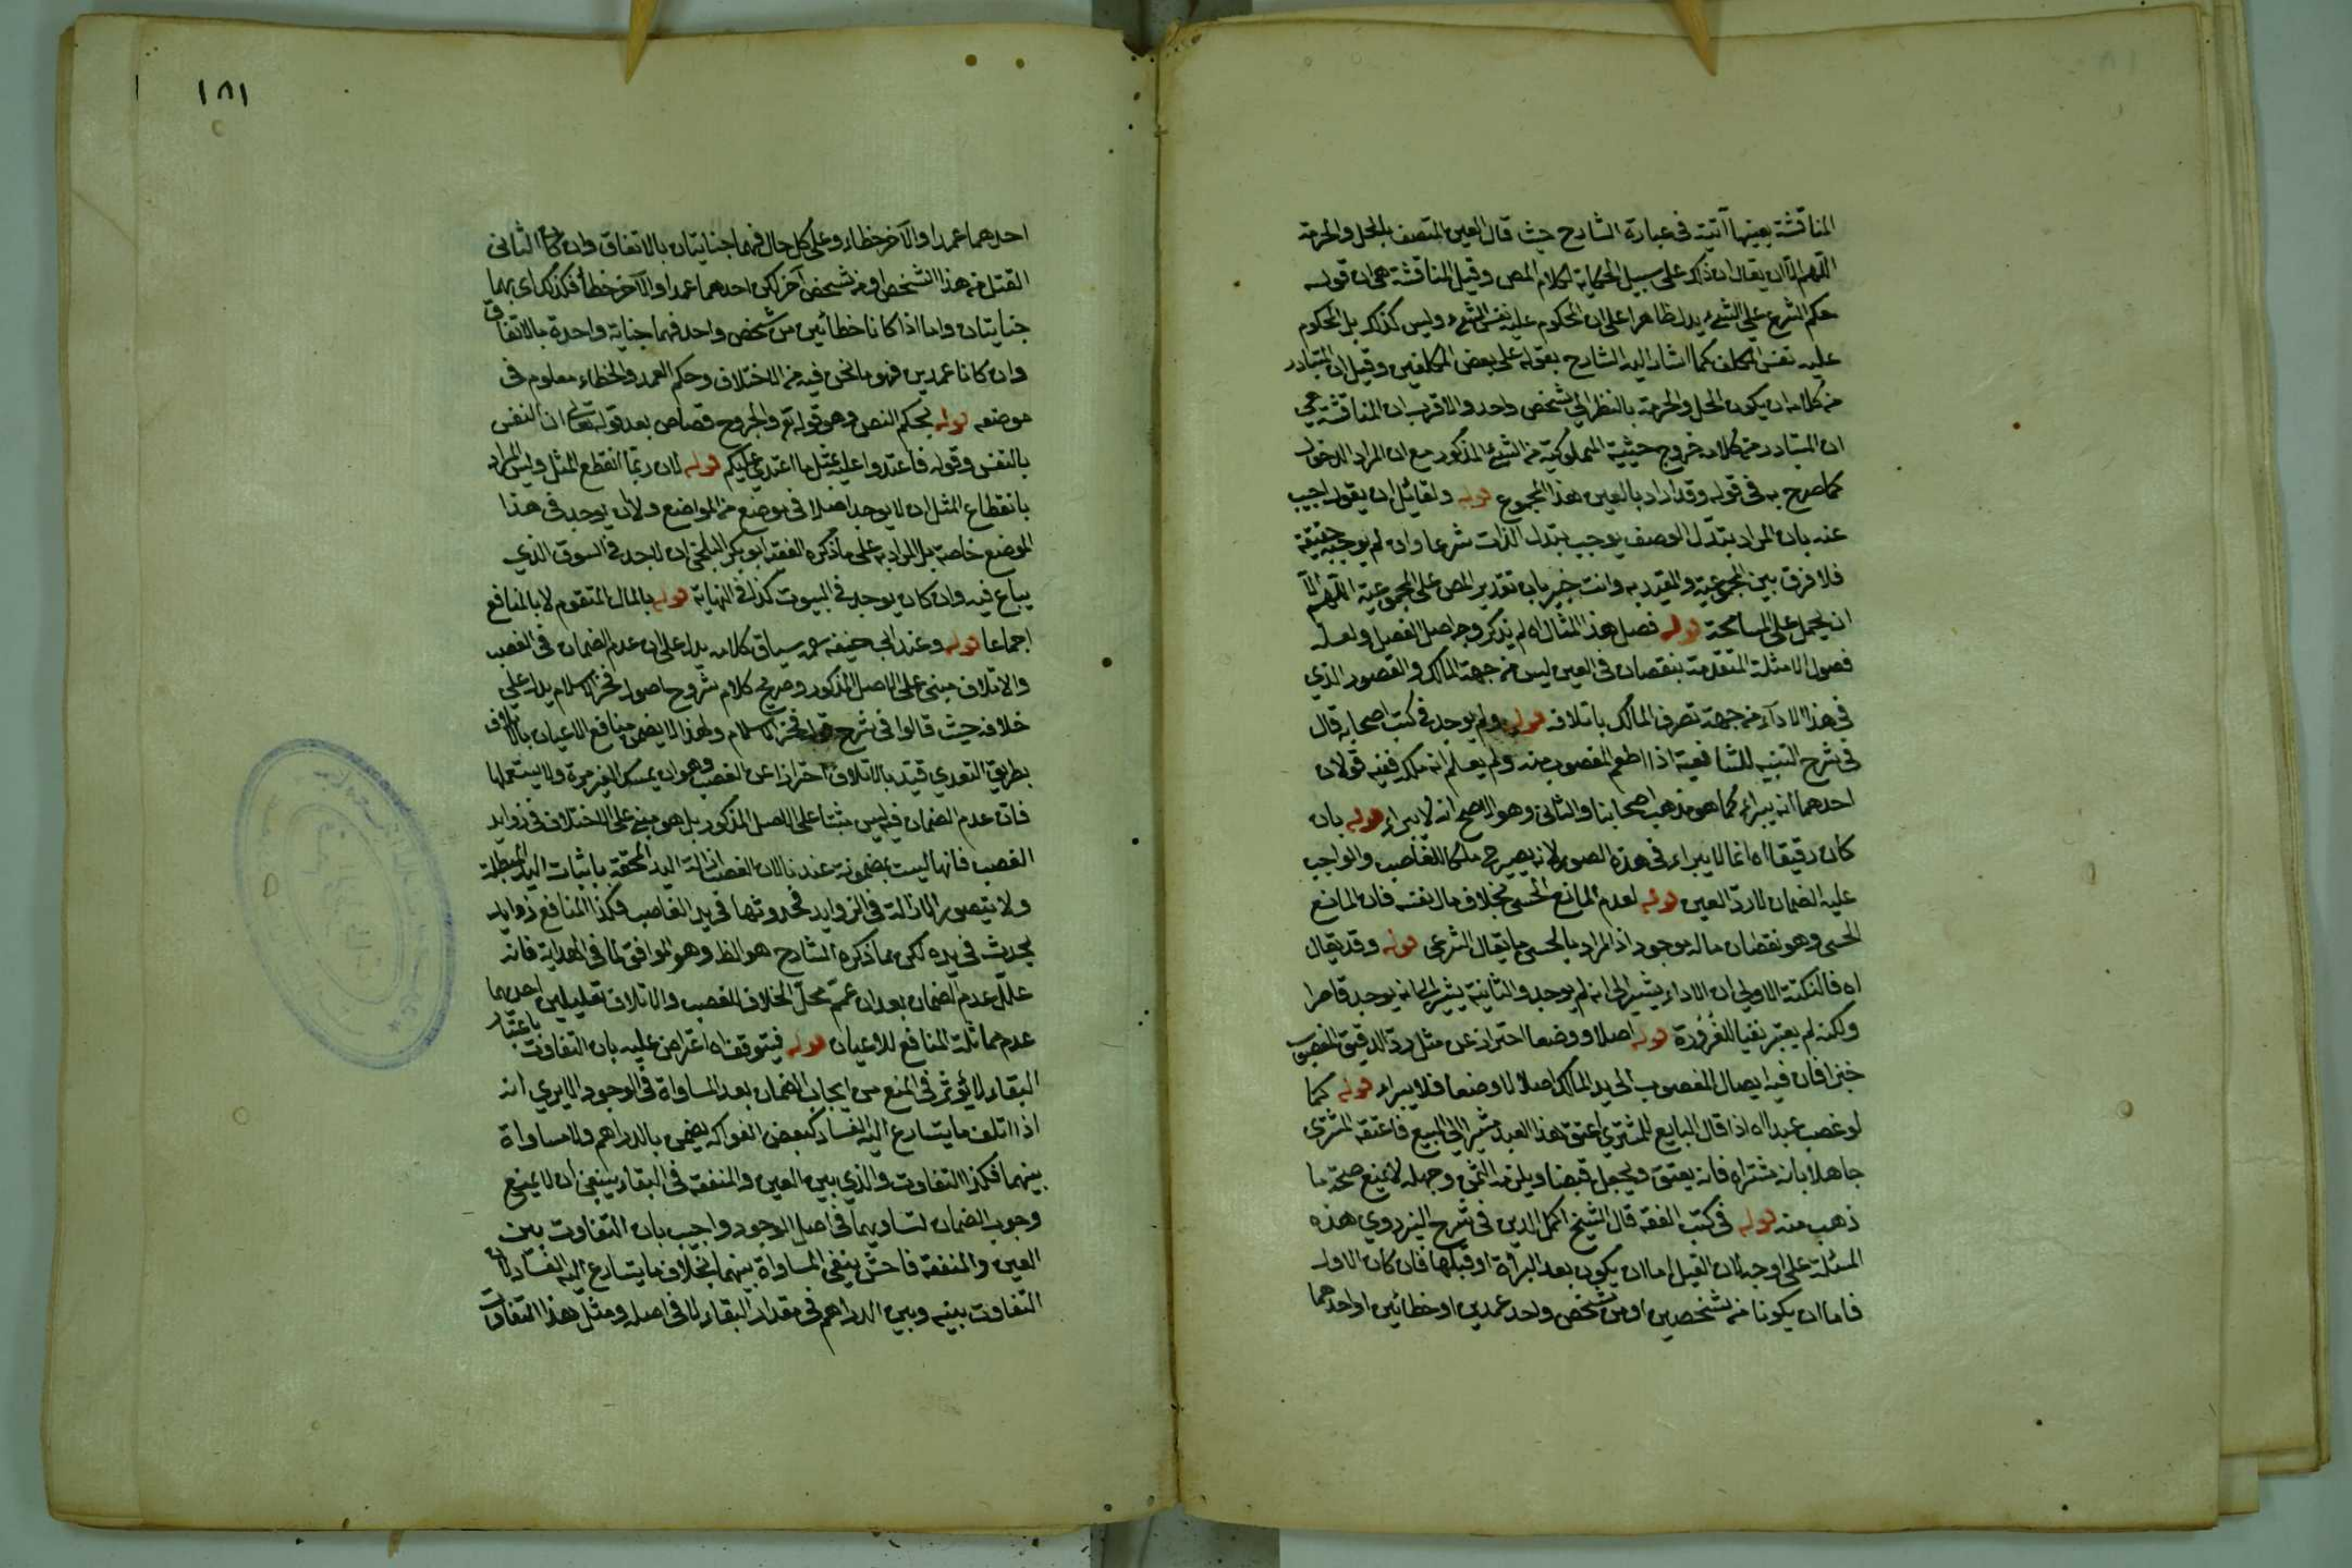 المناقشة بعينها آتية في عبارة الشارح حيث قال العين المتصف بالحل والحرمة
اللهم الا ان يقال ان ذلك على سبيل الحكاية لكلام المص وقيل المناقشة هي ان قوله
حكم الشرع على الشيء يدل ظاهرا على ان المحكوم عليه نفس الشيء وليس كذلك بل المحكوم
عليه نفس المكلف كما اشار اليه الشارح بقوله على بعض المكلفين وقيل ان المتبادر
من كلامه ان يكون الحل والحرمة بالنظر الى شخص واحد والاقرب ان المناقشة هي
ان المتبادر من كلامه خروج حيثية المملوكية من الشيء المذكور مع ان المراد الدخول
كما صرح به في قوله وقد اراد بالعين هذا المجموع قوله ولقائل ان يقول اجيب
عنه بان المراد بتبدل الوصف يوجب تبدل الذات شرعا وان لم يوجبه حقيقة
فلا فرق بين المجموعية والقيد به وانت خبير بان تقدير المص على المجموعية اللهم الا
ان يحمل على المسامحة قوله فصل هذا المثال اه لم يذكر وجه اصل الفصل ولعله
فصول الامثلة المتقدمة بنقصان في العين ليس من جهة المالك والقصور الذي
في هذا الاداء من جهة تصرف المالك باتلافه قوله ولم يوجد في كتب اصحابه قال
في شرح التنبيه للشافعية اذا اطعم المغصوب منه ولم يعلم انه ملكه ففيه قولان
احدهما انه يبراء كما هو مذهب اصحابنا والثاني وهو الاصح انه لا يبراء قوله بان
كان دقيقا اه انما لا يبراء في هذه الصور لانه يصير ح ملكا للغاصب والواجب
عليه الضمان لا رد العين قوله لعدم المانع الحسي بخلاف مال نفسه فان المانع
الحسي وهو نقصان ماله موجود اذ المراد بالحسي ما يقابل الشرعي قوله وقد يقال
اه فالنكتة الاولى ان الاداء يشير الى انه لم يوجد والثانية يشير الى انه يوجد قاصرا
ولكنه لم يعتبر نفيا للغرور قوله اصلا ووضعا احتراز عن مثل رد الدقيق المغصوب
خبزا فان فيه ايصال المغصوب الى يد المالك اصلا لا وضعا فلا يبراء قوله كما
لو غصب عبدا اه اذا قال البايع للمشتري اعتق هذا العبد مشيرا الى المبيع فاعتقه المشتري
جاهلا بانه مشتراه فانه يعتق ويجعل قبضا ويلزمه الثمن وجهله لا يمنع صحة ما
ذهب منه قوله في كتب الفقه قال الشيخ اكمل الدين في شرح البزدوي هذه
المسئلة على اوجه لان القتل اما ان يكون بعد البرأة او قبلها فان كان الاول
فاما ان يكونا من شخصين او من شخص واحد عمدين او خطائين او احدهما
١٨١
احدهما عمدا والآخر خطاء وعلى كل حال فهما جنايتان بالاتفاق وان كان الثاني
القتل من هذا الشخص او من شخص آخر لكن احدهما عمدا والآخر خطأ فكذلك اي هما
جنايتان واما اذا كانا خطائين من شخص واحد فهما جناية واحدة بالاتفاق
وان كانا عمدين فهو ما نحن فيه من الاختلاف وحكم العمد والخطاء معلوم في
موضعه قوله بحكم النص وهو قوله تع والجروح قصاص بعد قوله تعالى ان النفس
بالنفس وقوله فاعتدوا عليه بمثل ما اعتدي عليكم قوله لان ربما انقطع المثل وليس المراد
بانقطاع المثل ان لا يوجد اصلا في موضع من المواضع ولا ان يوجد في هذا
الموضع خاصة بل المراد به على ما ذكره الفقه ابو بكر البلخي ان لا يوجد في السوق الذي
يباع فيه وان كان يوجد في البيوت كذا في النهاية قوله بالمال المتقوم لا بالمنافع
اجماعا قوله وعند ابي حنيفه رحمه سياق كلامه يدل على ان عدم الضمان في الغصب
والاتلاف مبني على الاصل المذكور وصريح كلام شروح اصول فخر الاسلام يدل على
خلافه حيث قالوا في شرح قول فخر الاسلام ولهذا لا يضمن منافع الاعيان بالاتلاف
بطريق التعدي قيد بالاتلاف احترازا عن الغصب وهو ان يمسك العين مدة ولا يستعملها
فان عدم الضمان فيه ليس مبتنا على الاصل المذكور بل هو مبني على الاختلاف في زوايد
الغصب فانها ليست بمضمونة عندنا لان الغصب ازالة اليد المحققة باثبات اليد المبطلة
ولا يتصور الازالة في الزوايد لحدوثها في يد الغاصب فكذا المنافع زوايد
يحدث في يده لكن ما ذكره الشارح هو الظ وهو الموافق لما في الهداية فانه
علل عدم الضمان بعد ان عمم محل الخلاف الغصب والاتلاف بتعليلين احديهما
عدم مماثلة المنافع للاعيان قوله فيتوقف اه اعترض عليه بان التفاوت باعتبار
البقاء لا يؤثر في المنع من ايجاب الضمان بعد المساواة في الوجود الا يرى انه
اذا اتلف ما يتسارع اليه الفساد كبعض الفواكه يضمن بالدراهم ولا مساواة
بينهما فكذا التفاوت والذي بين العين والمنفعة في البقاء ينبغي ان لا يمنع
وجوب الضمان لتساويهما في اصل الوجود واجيب بان التفاوت بين
العين والمنفعة فاحش ينفي المساواة بينهما بخلاف ما يتسارع اليه الفساد لان
التفاوت بينه وبين الدراهم في مقدار البقاء لا في اصله ومثل هذا التفاوت